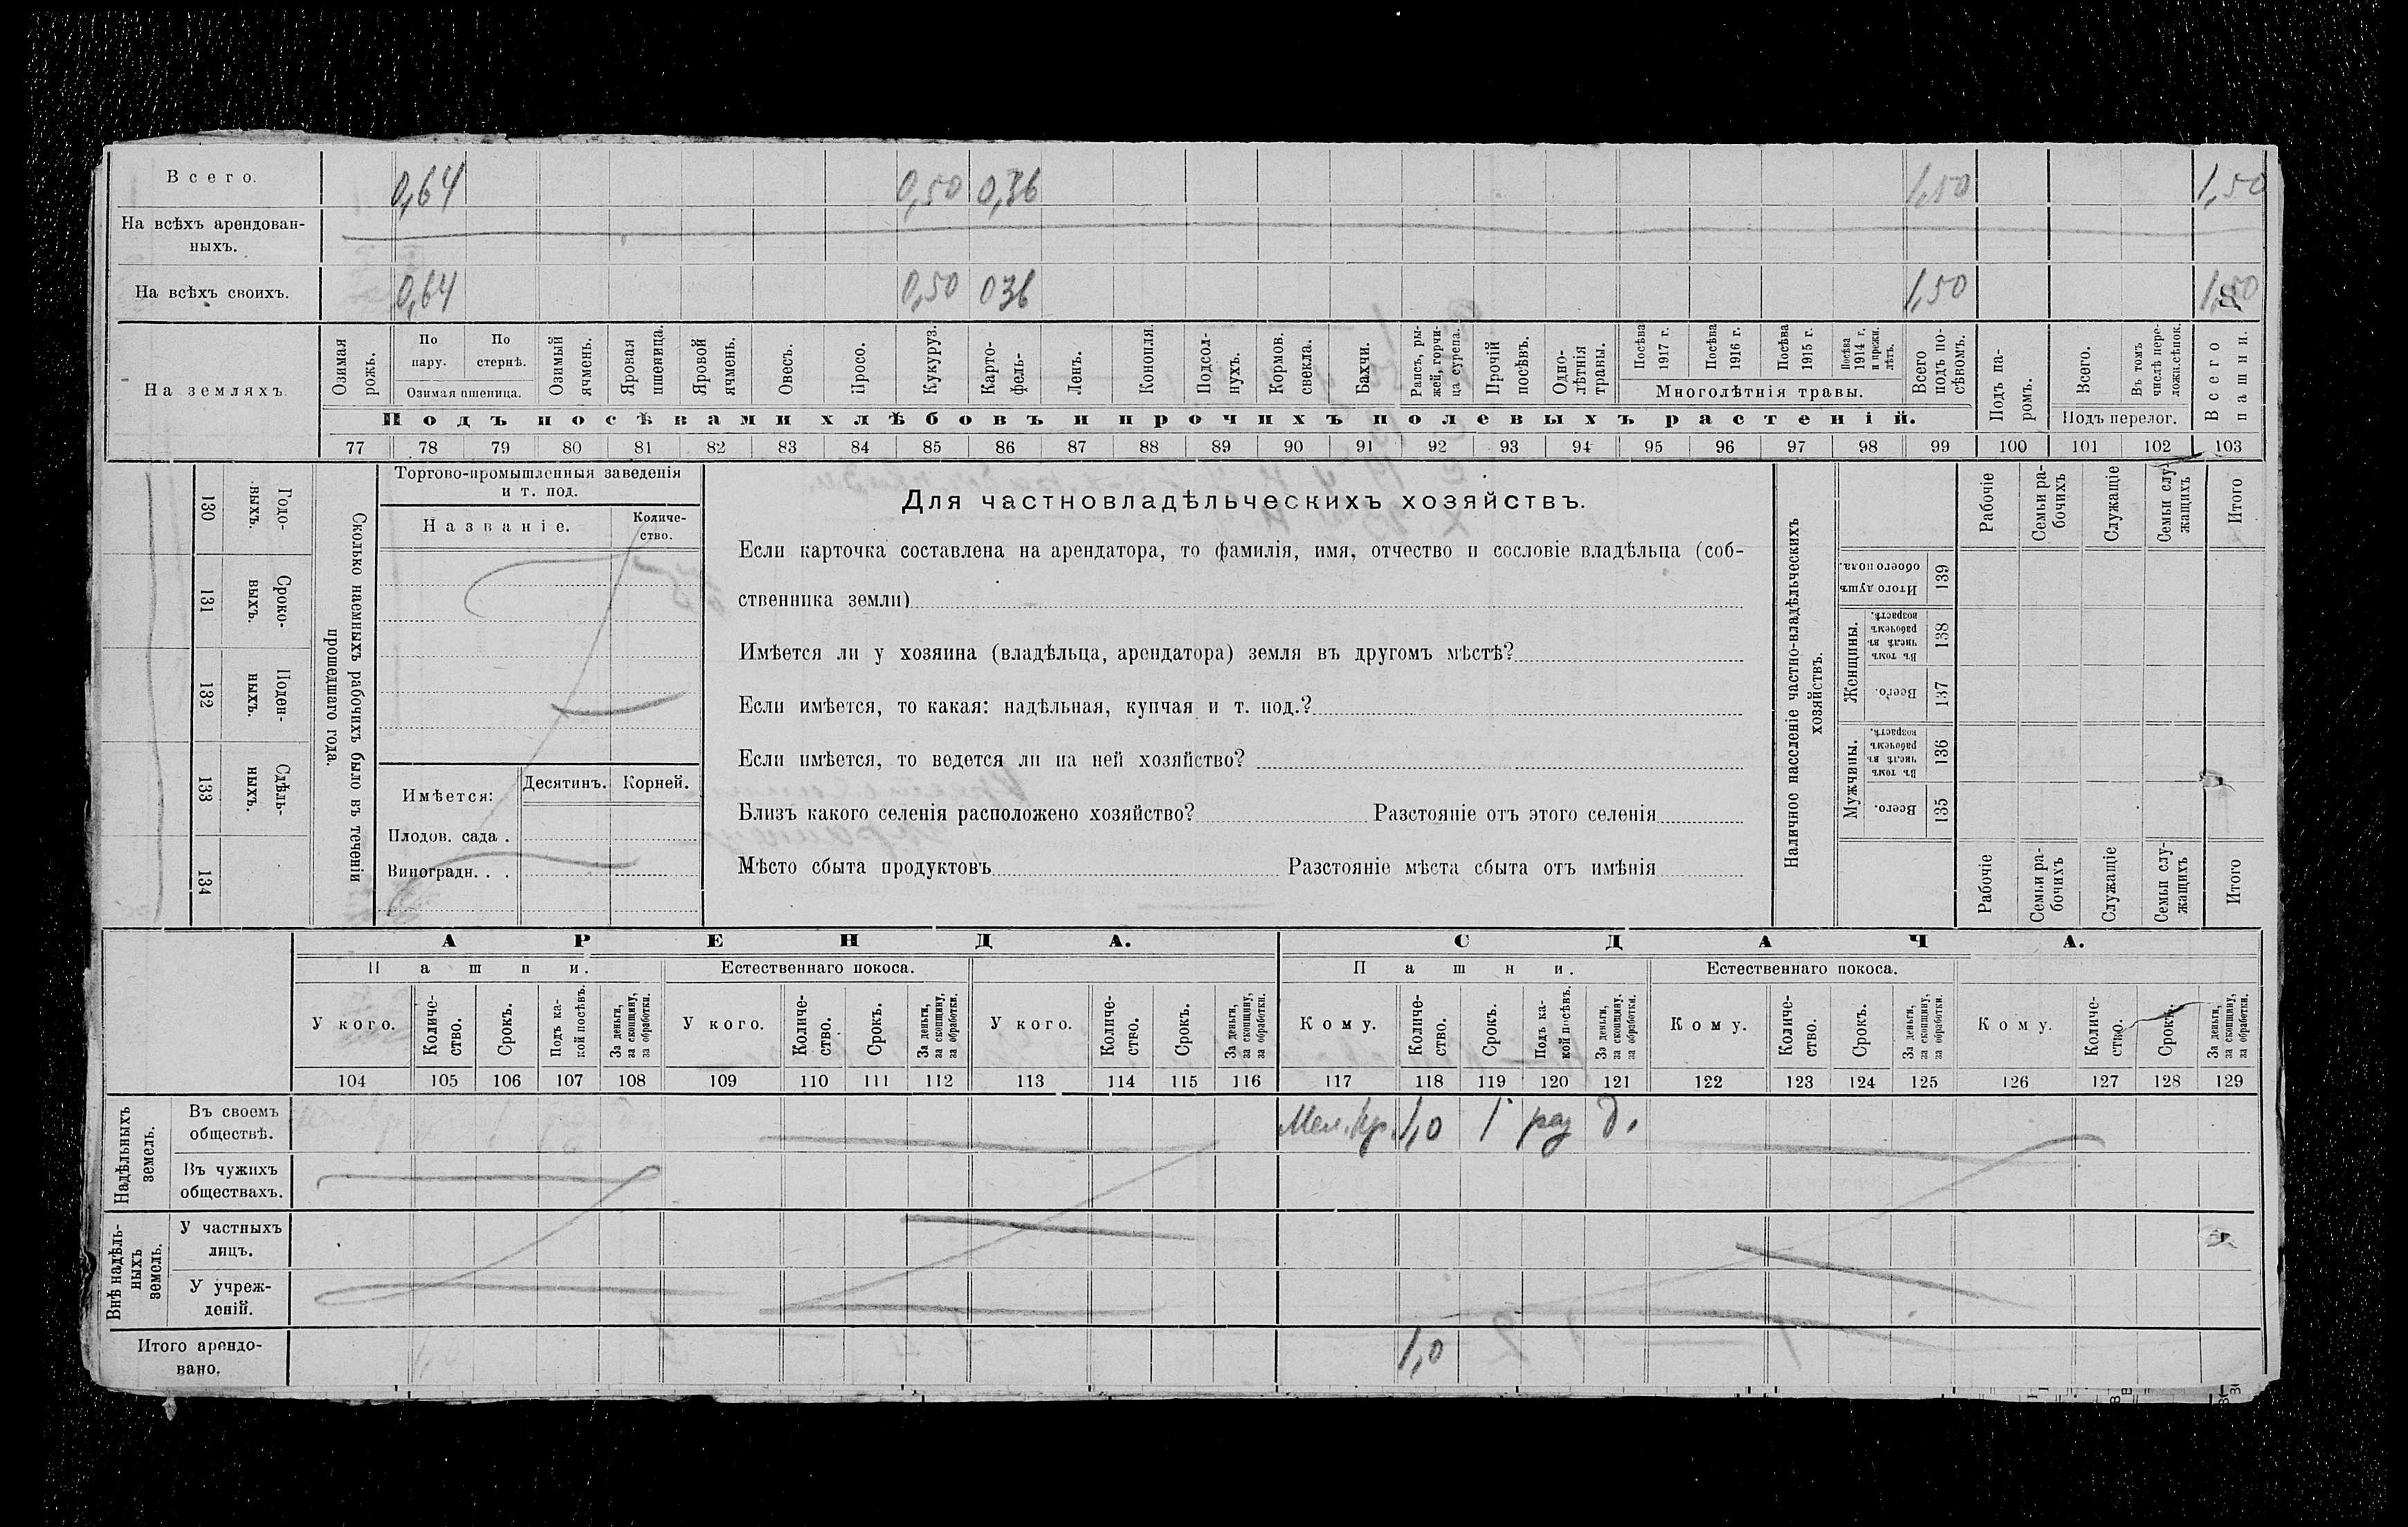 Всего. 0,64 0,50 0,36 1,50 1,50
На всѣхъ арендован-
ныхъ.
На всѣхъ своихъ. 0,64 0,50 036 1,50 1,50
На земляхъ.
Озимая рожь.
По пару.
По стернѣ.
Озимая пшеница.
Озимый ячмень.
Яровая пшеница.
Яровой ячмень.
Овесъ.
Просо.
Кукуруз.
Карто-
фель-
Ленъ.
Конопля
Подсол-
нухъ.
Кормов. свекла.
Бахчи.
Рапсъ, ры-
жей, горчи-
ца сурепа.
Прочій посѣвъ.
Одно-
лѣтнія травы.
Посѣва 1917 г.
Посѣва 1916 г.
Посѣва 1915 г.
Посѣва 1914 г. и прежн. лѣтъ.
Многолѣтнія травы.
Всего подъ по-
сѣвомъ.
Подъ па-
ромъ.
Всего.
Въ томъ числѣ пере-
ложн.сѣнок.
Подъ перелог.
Всего пашни.
Подъ посѣвами хлѣбовъ и прочихъ полевыхъ растеній.
77 78 79 80 81 82 83 84 85 86 87 88 89 90 91 92 93 94 95 96 97 98 99 100 101 102 103
130 Годо-
выхъ.
131 Сроко-
выхъ.
132 Поден-
ныхъ.
133 Сдѣль-
ныхъ.
134
Сколько наемныхъ рабочихъ было въ теченіи
прошедшаго года.
Торгово-промышленныя заведенія
и т. под.
Названіе. Количе-
ство.
Имѣется: Десятинъ. Корней.
Плодов. сада .
Виноградн. . .
Для частновладѣльческихъ хозяйствъ.
Если карточка составлена на арендатора, то фамилія, имя, отчество и сословіе владѣльца (соб-
ственника земли)
Имѣется ли у хозяина (владѣльца, арендатора) земля въ другомъ мѣстѣ?
Если имѣется, то какая: надѣльная, купчая и т. под.?
Если имѣется, то ведется ли на ней хозяйство?
Близъ какого селенія расположено хозяйство? Разстояніе отъ этого селенія
Мѣсто сбыта продуктовъ Разстояніе мѣста сбыта отъ имѣнія
Наличное населеніе частно-владѣльческихъ
хозяйствъ.
Рабочіе
Семьи ра-
бочихъ
Служащіе
Семьи слу-
жащихъ
Итого
Итого душъ обоего пола. 139
Женщины.
Въ томъ числѣ въ рабочемъ возрастѣ. 138
Всего. 137
Мужчины.
Въ томъ числѣ въ рабочемъ возрастѣ. 136
Всего. 135
Рабочіе
Семьи ра-
бочихъ
Служащіе
Семьи слу-
жащихъ
Итого
АРЕНДА. СДАЧА.
Пашни. Естественнаго покоса. Пашни. Естественнаго покоса.
У кого.
Количе-
ство.
Срокъ.
Подъ ка-
кой посѣвъ.
За деньги, за скопщину, за обработки.
У кого.
Количе-
ство.
Срокъ.
За деньги, за скопщину, за обработки.
У кого.
Количе-
ство.
Срокъ.
За деньги, за скопщину, за обработки.
Кому.
Количе-
ство.
Срокъ.
Подъ ка-
кой посѣвъ.
За деньги, за скопщину. за обработки.
Кому.
Количе-
ство.
Срокъ.
За деньги, за скопщину, за обработки.
Кому.
Количе-
ство.
Срокъ.
За деньги, за скопщину, за обработки.
104 105 106 107 108 109 110 111 112 113 114 115 116 117 118 119 120 121 122 123 124 125 126 127 128 129
Надѣльныхъ земель.
Въ своемъ
обществѣ. 1,0 1 д.
Въ чужихъ
обществахъ.
Внѣ надѣль-
ныхъ земель.
У частныхъ
лицъ.
У учреж-
деній.
Итого арендо-
вано. 1,0